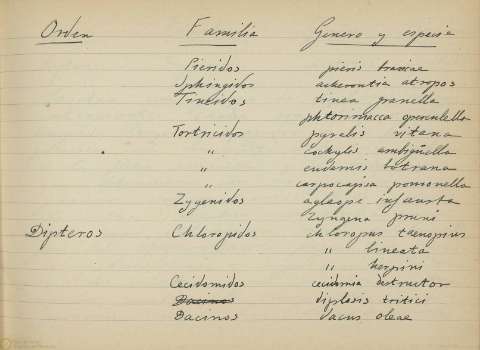 Orden Familia Genero y especie
Pieridos pieris brasicae
Sphingidos acherontia atropos
Tineidos tinea granella
phtorimaea operculella
Tortricidos pyralis vitana
" cochylis ambigüella
" eudemis botrana
" carpocapsa pomonella
Zygenidos aglaope infausta
zyngena pruni
Dipteros Chloropidos chloropus taenopius
" lineata
" herpini
Cecidomidos cecidomia destructor
Dacinos diplosis tritici
Dacinos dacus oleae